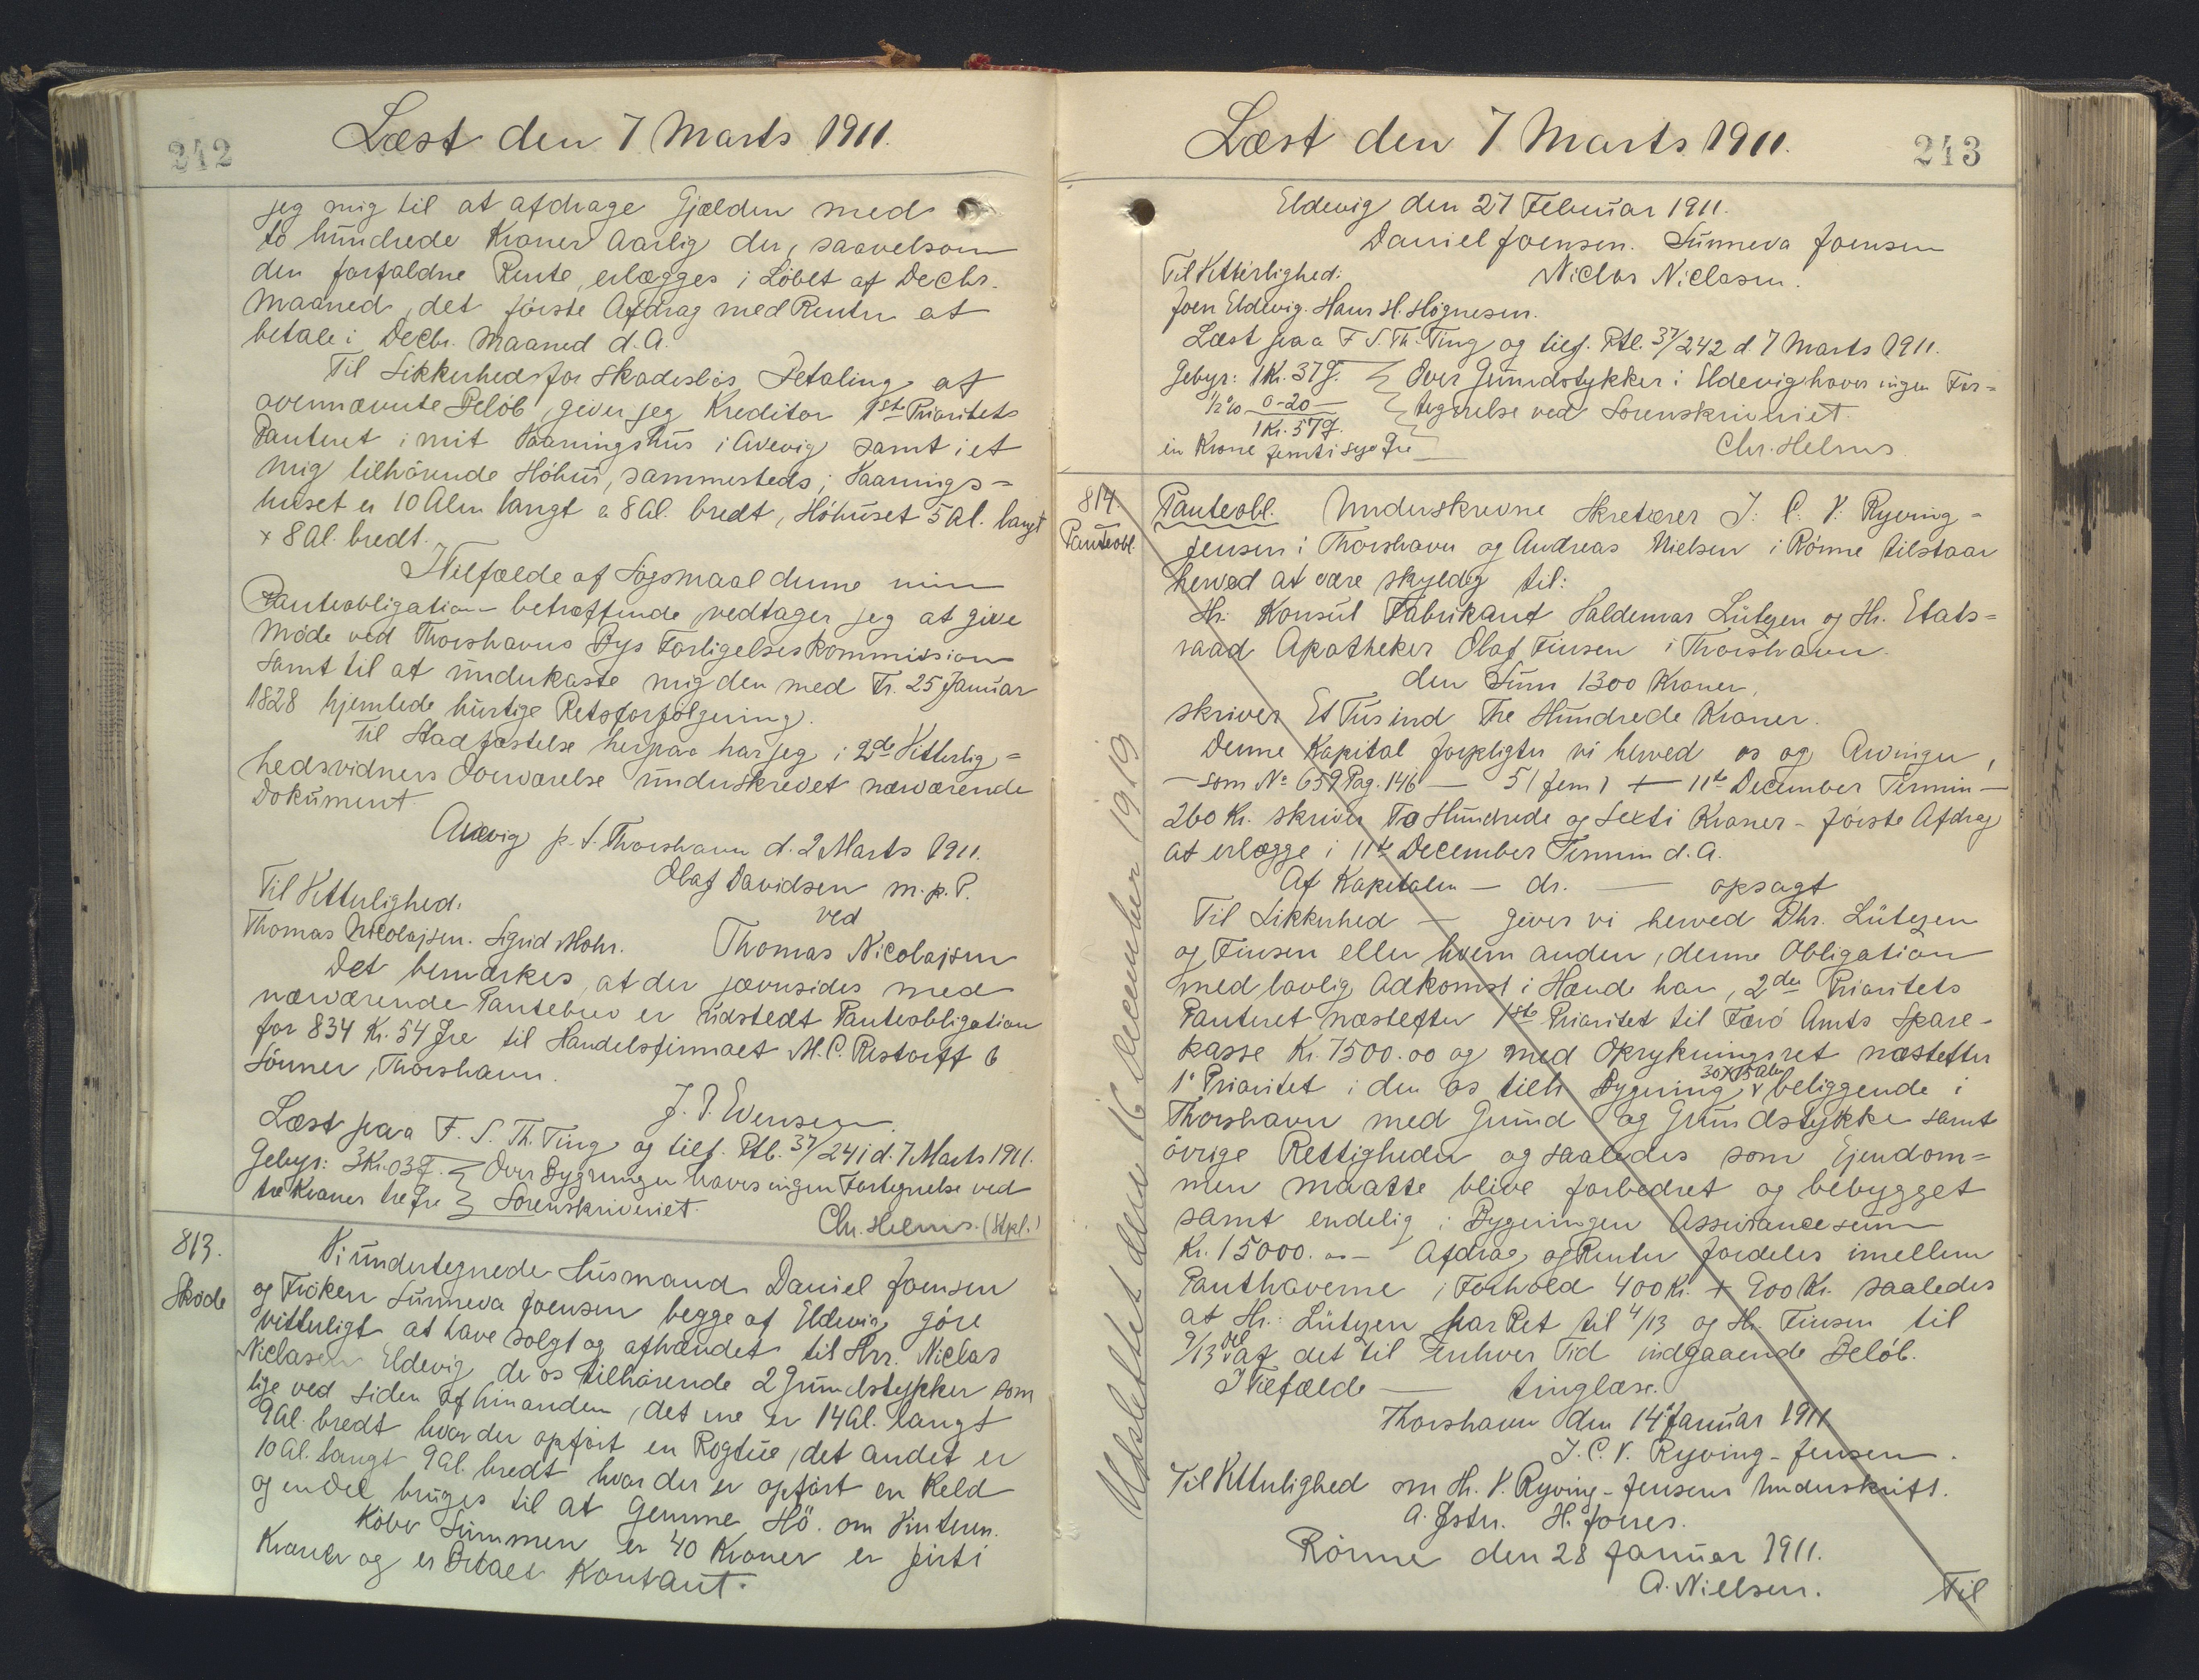 242
Læst den 7 Marts 1911.
jeg mig til at afdrage Gjælden med
to hundrede Kroner aarlig der, saavelsom
den forfaldne Rente, erlægges i Løbet af Decbr.
Maaned, det første Afdrag med Renter at
betale i Decbr. Maaned d.A.
Til Sikkerhed for skadesløs Betaling af
ovennævnte Beløb, giver jeg Kreditor 1ste Prioritets
Panteret i mit Vaaningshus i Avevig samt i et
mig tilhørende Høhus, sammesteds; Vaanings-
huset er 10 Alen langt a 8 Al. bredt, Høhuset 5 Al. langt
x 8 Al. bredt.
I Tilfælde af Søgsmaal denne min
Panteobligation betræffende, vedtager jeg at give
Møde ved Thorshavns Bys Forligelseskommission
samt til at underkaste mig den med Fr. 25 Januar
1828 hjemlede hurtige Retsforfølgning.
Til Stadfæstelse herpaa har jeg i 2de Vitterlig-
hedsvidners Overværelse underskrevet nærværende
Dokument.
Avevig p.t. Thorshavn d. 2 Marts 1911.
Olaf Davidsen m.p.P.
Til Vitterlighed:
ved
Thomas Nicolajsen. Sigrid Mohr.
Thomas Nicolajsen
Det bemærkes, at der jævnsides med
nærværende Pantebrev er udstedt Panteobligation
for 834 Kr. 54 Øre til Handelsfirmaet M.C. Restorff &
Sønner, Thorshavn.
J.P. Evensen.
Læst paa F. S. Th. Ting og tilf. Ptb. 37/241 d. 7 Marts 1911.
Gebyr: 3 Kr. 03 Ø. Over Bygninger haves ingen Fortegnelse ved
tre Kroner tre Øre Sorenskriveriet.
Chr. Helms. (Stpl.)
813.
Skøde
Vi undertegnede Husmand Daniel Joensen
og Frøken Sunneva Joensen begge af Eldevig gøre
vitterligt at have solgt og afhændet til Hrr. Niclas
Niclasen Eldevig de os tilhørende 2 Grundstykker som
lige ved Siden af hinanden, det ene er 14 Al. langt
9 Al. bredt hvor der opført en Rogtue, det andet er
10 Al. langt 9 Al. bredt hvor der er opført en Keld
og en Del bruges til at Gemme Hø. om Vinteren.
Købe Summen er 40 Kroner er firti
Kroner og er Betalt Kontant.
243
Læst den 7 Marts 1911.
Eldevig den 27 Februar 1911.
Daniel Joensen. Sunneva Joensen
Til Vitterlighed:
Niclas Niclasen.
Joen Eldevig. Hans H. Høgnesen.
Læst paa F. S. Th. Ting og tilf. Ptb. 37/242 d 7 Marts 1911.
Gebyr: 1 Kr. 37 Ø. Over Grundstykker i Eldevig haves ingen For-
1/2 % 0-20 — tegnelse ved Sorenskriveriet.
1 Kr. 57 Ø.
en Krone femti syv Øre
Chr. Helms.
814.
Panteobl.
Panteobl. Underskrevne Skretærer J. C. V. Ryving-
Jensen i Thorshavn og Andreas Nielsen i Rønne tilstaar
herved at være skyldig til:
Hr. Konsul Fabrikant Valdemar Lützen og Hr. Etats-
raad Apotheker Olaf Finsen i Thorshavn
den Sum 1300 Kroner,
skriver Et Tusind Tre Hundrede Kroner.
Denne Kapital forpligter vi herved os og Arvinger,
— som No 659 Pag. 146 — 5 (fem) + 11te December Termin —
260 Kr. skriver To Hundrede og Sexti Kroner - første Afdrag
at erlægge i 11te December Termin d.A.
Af Kapitalen — dr. — opsagt
Til Sikkerhed — giver vi herved Dhr. Lützen
og Finsen eller hvem anden, denne Obligation
med lovlig Adkomst i Hænde har, 2den Prioritets
Panteret næstefter 1ste Prioritet til Færø Amts Spare-
kasse Kr. 7500.00 og med Oprykningsret næstefter
1' Prioritet i den os tilh Bygning 30x15 Alen beliggende i
Thorshavn med Grund og Grundstykke samt
øvrige Rettigheder og saaledes som Ejendom-
men maatte blive forbedret og bebygget
samt endelig i Bygningen Assurancesum
Kr. 15000.00 — Afdrag og Renter fordeles imellem
Panthaverne i Forhold 400 Kr. + 900 Kr. saaledes
at Hr. Lützen har Ret til 4/13 og Hr. Finsen til
9/13 Del af det til enhver Tid indgaaende Beløb.
I Tilfælde — tinglæse.
Thorshavn den 14' Januar 1911
J. C. V. Ryving-Jensen.
Til Vitterlighed om Hr. V. Ryving-Jensens Underskrift.
A. Østr. H. Joures.
Rønne den 28 Januar 1911.
A. Nielsen.
Til
Udslettet den 16 December 1919